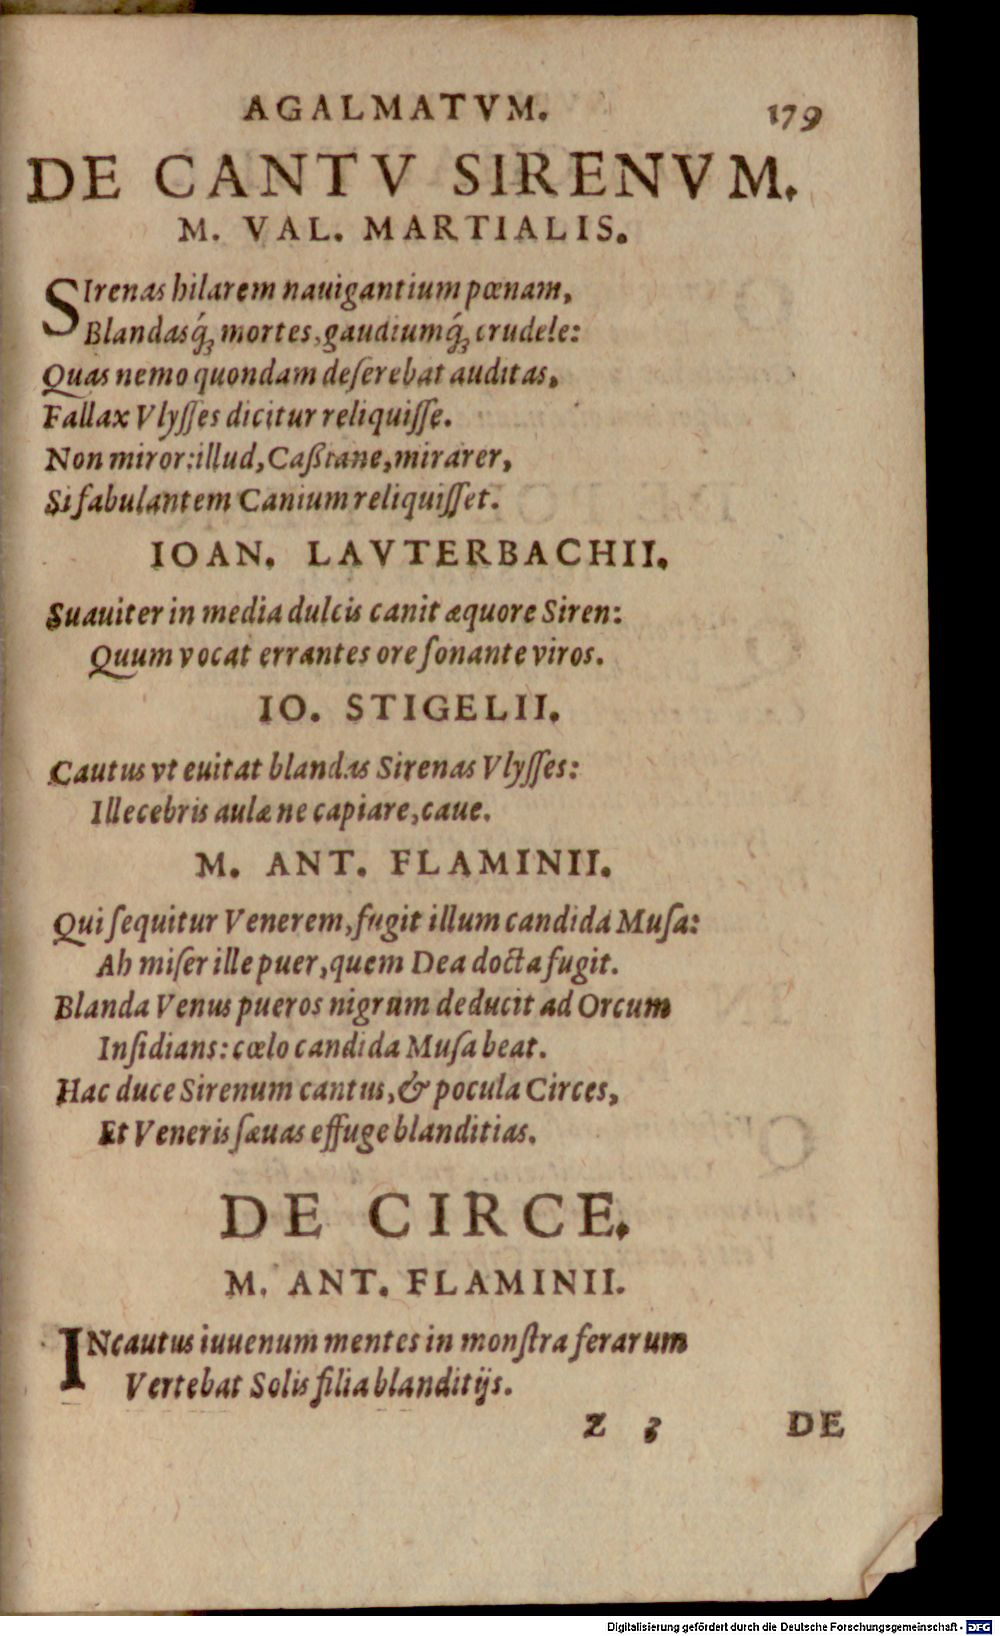 AGALMATVM. 179
DE CANTV SIRENVM.
M. VAL. MARTIALIS.
SIrenas hilarem nauigantium pœnam,
Blandasq́; mortes, gaudiumq́; crudele:
Quas nemo quondam deſerebat auditas,
Fallax Vlyſſes dicitur reliquiſſe.
Non miror: illud, Caßiane, mirarer,
Si fabulantem Canium reliquiſſet.
IOAN. LAVTERBACHII.
Suauiter in media dulcis canit æquore Siren:
Quum vocat errantes ore ſonante viros.
IO. STIGELII.
Cautus vt euitat blandas Sirenas Vlyſſes:
Illecebris aulæ ne capiare, caue.
M. ANT. FLAMINII.
Qui ſequitur Venerem, fugit illum candida Muſa:
Ah miſer ille puer, quem Dea docta fugit.
Blanda Venus pueros nigrum deducit ad Orcum
Inſidians: cœlo candida Muſa beat.
Hac duce Sirenum cantus, & pocula Circes,
Et Veneris ſæuas effuge blanditias.
DE CIRCE.
M. ANT. FLAMINII.
INcautus iuuenum mentes in monſtra ferarum
Vertebat Solis filia blanditijs.
Z 3 DE
Digitalisierung gefördert durch die Deutsche Forschungsgemeinschaft - DFG